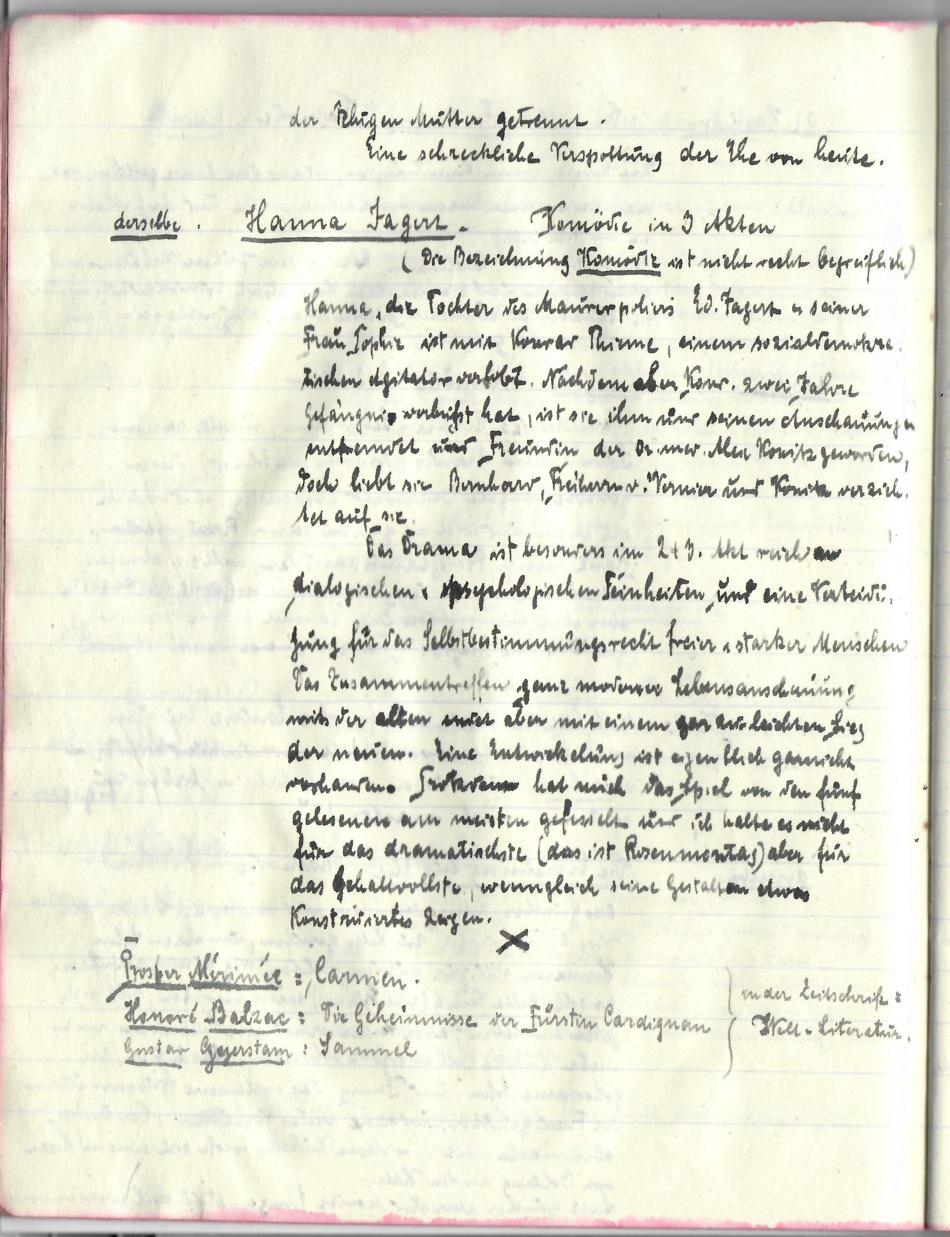 der klugen Mutter getrennt.
Eine schreckliche Verspottung der Ehe von heute.
derselbe. Hanna Jagert. Komödie in 3 Akten
(Die Bezeichnung Komödie ist nicht recht begreiflich)
Hanna, die Tochter des Maurerpoliers Ed. Jagert u seiner
Frau Sophie ist mit Konrad Thieme, einem sozialdemokra-
tischen Agitator verlobt. Nachdem aber Konr. zwei Jahre
Gefängnis verbüßt hat, ist sie ihm und seinen Anschauungen
entfremdet und Freundin des Dr. med. Alex Könitz geworden,
doch liebt sie Bernhard, Freiherrn v. Vernier und Könitz verzich-
tet auf sie.
Das Drama ist besonders im 2+3. Akt reich an
dialogischen u psychologischen Feinheiten und eine Verteidi-
gung für das Selbstbestimmungsrecht freier u starker Menschen
Das Zusammentreffen ganz moderner Lebensanschauung
mit der alten endet aber mit einem gar zu leichten Sieg
der neuen. Eine Entwickelung ist eigentlich garnicht
vorhanden. Trotzdem hat mich das Spiel von den fünf
gelesenen am meisten gefesselt und ich halte es nicht
für das dramatischste (das ist Rosenmontag) aber für
das Gehaltvollste, wenngleich seine Gestalten etwas
Konstruiertes zeigen.
Prosper Mérimée: Carmen.
Honoré Balzac: Die Geheimnisse der Fürstin Cardignan
Gustav Geijerstam: Sammel
in der Zeitschrift:
Welt-Literatur.